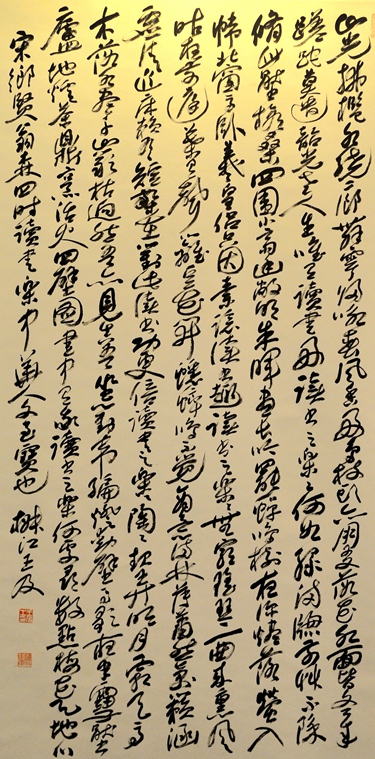 山光拂檻水繞廊舞雩歸咏春風香好鳥枝頭亦朋友落花水面皆文章
蹉跎莫遣韶光老人生唯有讀書好讀書之樂樂何如綠滿窗前草不除
修竹壓檐桑四圍小齋幽敞明朱暉晝長吟罷蟬鳴樹夜深燼落螢入
幃北窗高臥羲皇侶只因素諗讀書趣讀書之樂樂無窮瑤琴一曲來薰風
昨夜庭前葉有聲籬豆花開蟋蟀鳴不覺商意滿林薄蕭然萬籟涵
虛清近床賴有短檠在對此讀書功更倍讀書之樂樂陶陶起弄明月霜天高
木落水盡千崖枯迥然吾亦見真吾坐對韋編燈動壁高歌夜半雪壓
廬地爐茶鼎烹活火四壁圖書中有我讀書之樂何處尋數點梅花天地心
宋鄉賢翁森四時讀書樂中華人文至寶也 江王及